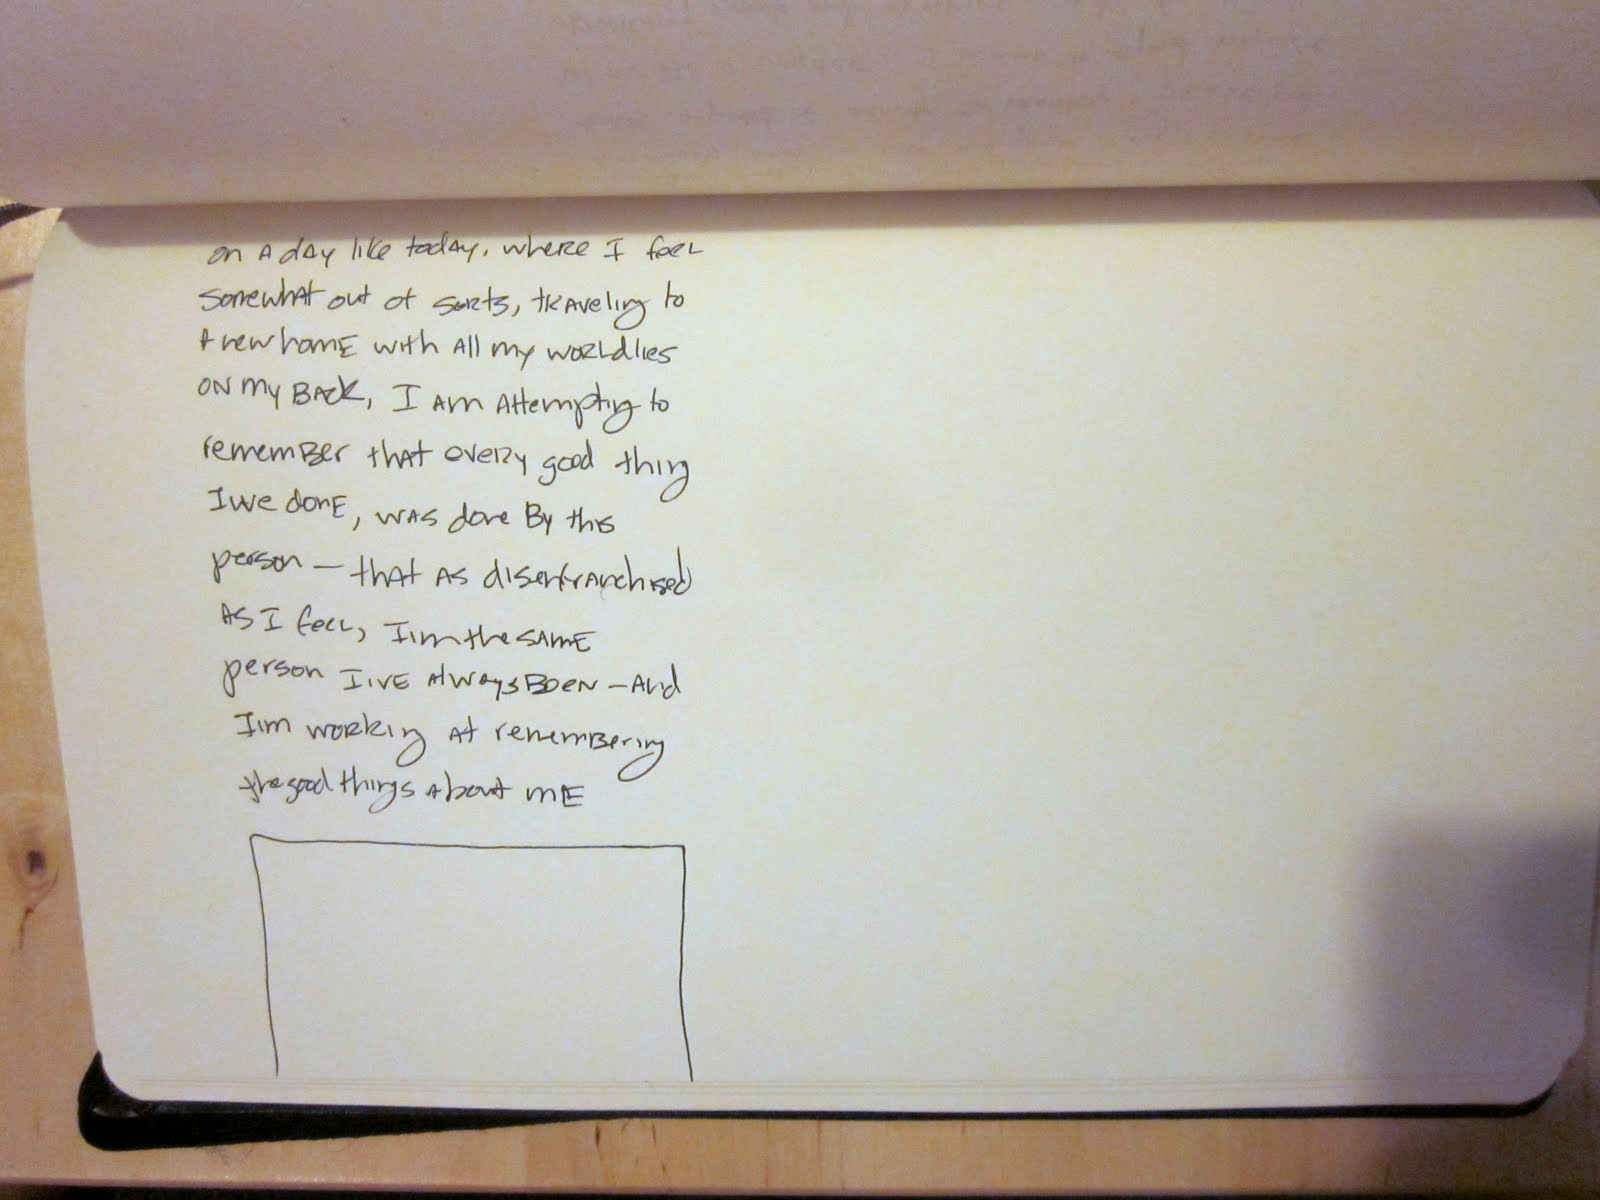 on A dAy like todAy, where I feel
somewhAt out of sorts, trAveling to
A new homE with All my worldlies
ON my BAck, I Am Attempting to
rememBer thAt every good thing
I've donE, wAs done By this
person — thAt As disenfrAnchised
As I feel, I'm the sAmE
person I'vE AlwAys BeeN — ANd
I'm working At rememBering
the good things About mE